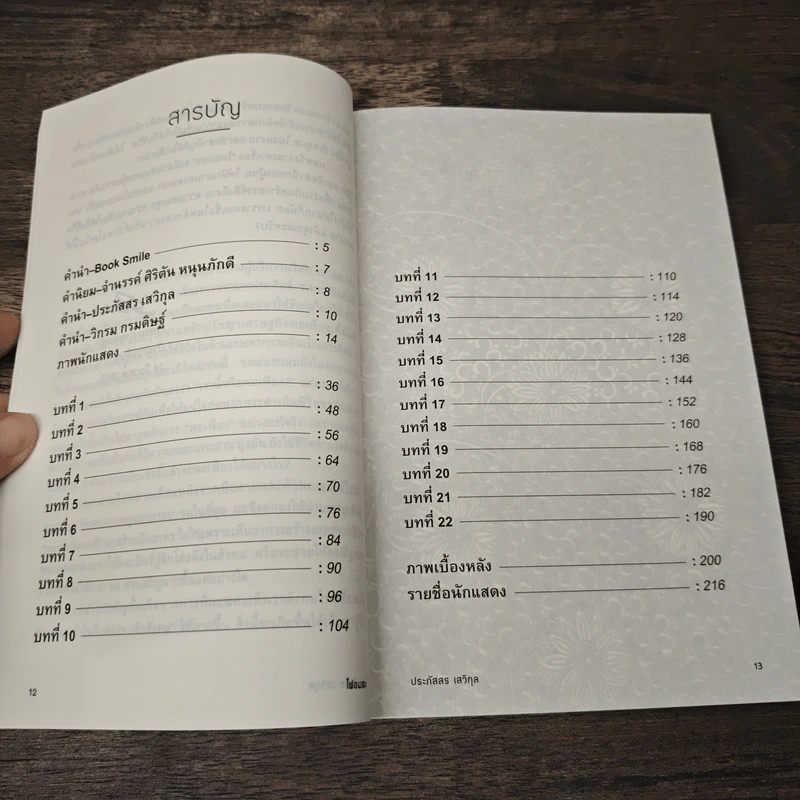 สารบัญ
คำนำ–Book Smile : 5
คำนิยม–จำนรรค์ ศิริตัน หนุนภักดี : 7
คำนำ–ประภัสสร เสวิกุล : 8
คำนำ–วิกรม กรมดิษฐ์ : 10
ภาพนักแสดง : 14
บทที่ 1 : 36
บทที่ 2 : 48
บทที่ 3 : 56
บทที่ 4 : 64
บทที่ 5 : 70
บทที่ 6 : 76
บทที่ 7 : 84
บทที่ 8 : 90
บทที่ 9 : 96
บทที่ 10 : 104
12 ไฟอมตะ
บทที่ 11 : 110
บทที่ 12 : 114
บทที่ 13 : 120
บทที่ 14 : 128
บทที่ 15 : 136
บทที่ 16 : 144
บทที่ 17 : 152
บทที่ 18 : 160
บทที่ 19 : 168
บทที่ 20 : 176
บทที่ 21 : 182
บทที่ 22 : 190
ภาพเบื้องหลัง : 200
รายชื่อนักแสดง : 216
ประภัสสร เสวิกุล 13